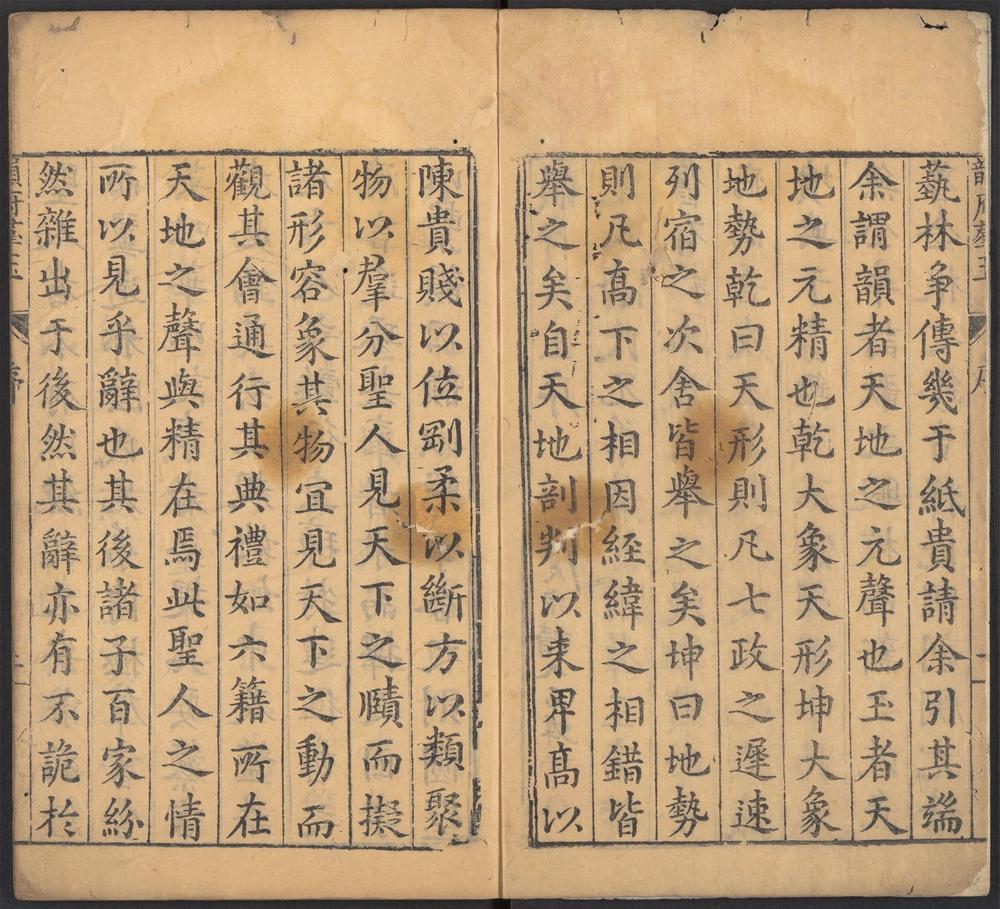 藝林争傳幾于紙貴請余引其端
余謂韻者天地之元聲也玉者天
地之元精也乾大象天形坤大象
地勢乾曰天形則凡七政之遲速
列宿之次舍皆舉之矣坤曰地勢
則凡高下之相因経緯之相錯皆
舉之矣自天地剖判以来卑高以
陳貴賤以位剛柔以斷方以類聚
物以羣分聖人見天下之賾而擬
諸形容象其物宜見天下之動而
觀其會通行其典禮如六籍所在
天地之聲與精在焉此聖人之情
所以見乎辭也其後諸子百家紛
然雜出于後然其辭亦有不詭於